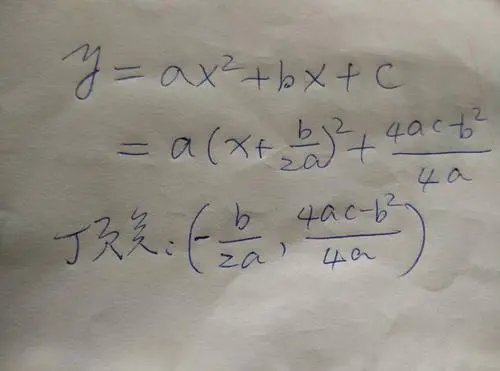 y = ax² + bx + c
= a(x + b/2a)² + (4ac-b²)/4a
顶点：(-b/2a, (4ac-b²)/4a)